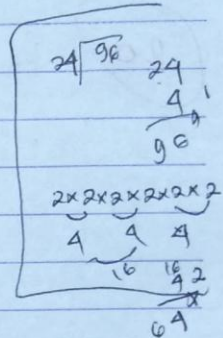 24 96 24
4
96
2x2x2x2x2x2
4 4 4
16 16
4 2
64